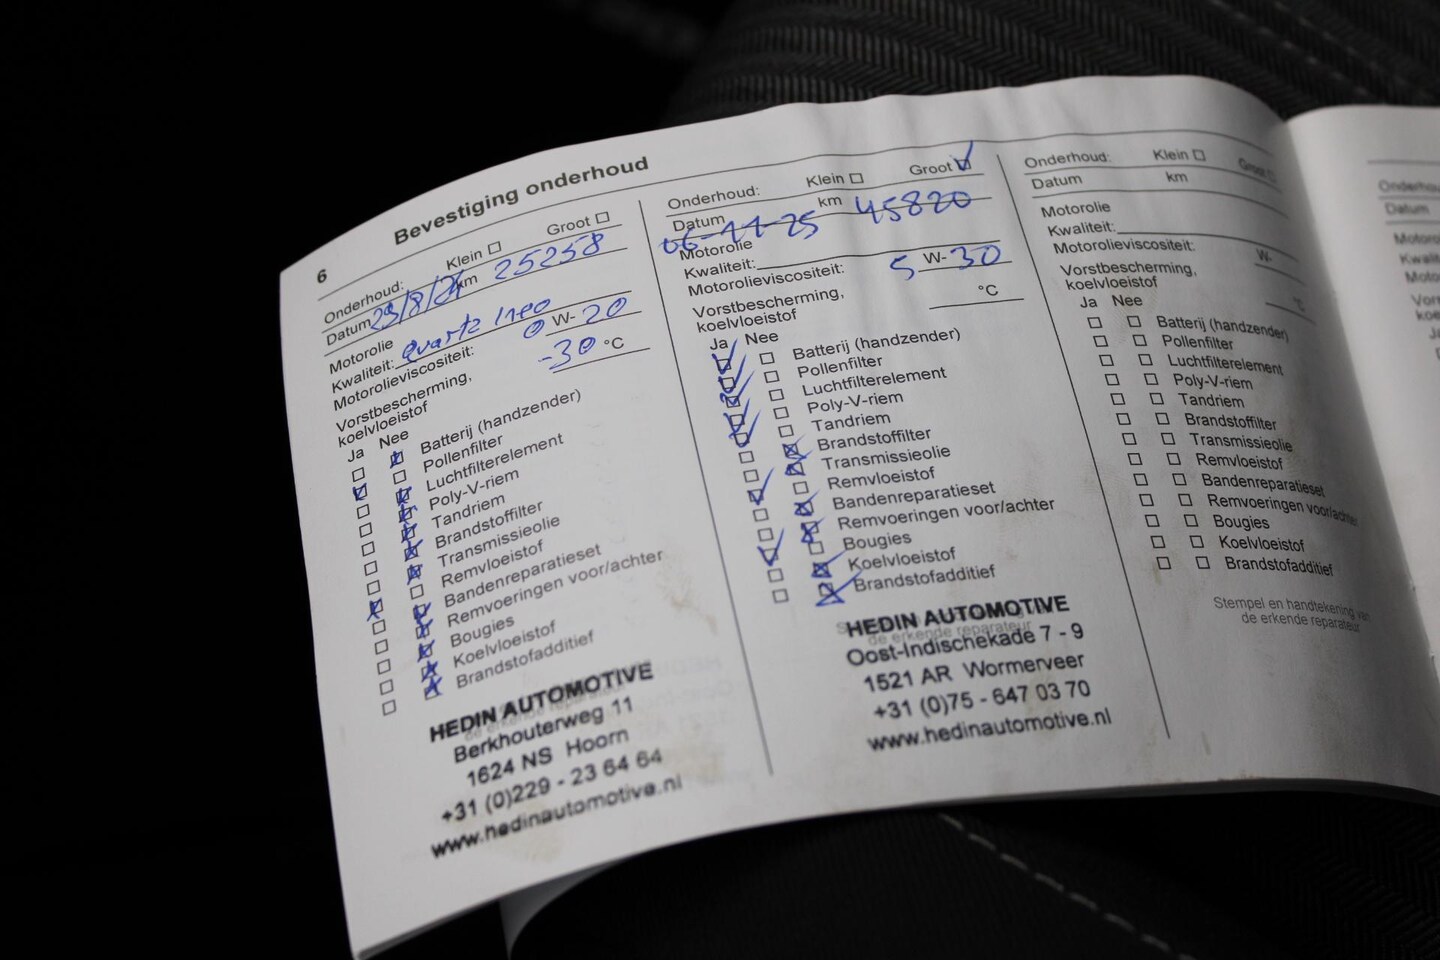 6
Bevestiging onderhoud
Onderhoud: Klein Groot
Datum 29/8/24 km 25258
Motorolie
Kwaliteit: Quartz Ineo
Motorolieviscositeit: 0 W- 20
Vorstbescherming, -30 °C
koelvloeistof
Ja Nee
Batterij (handzender)
Pollenfilter
Luchtfilterelement
Poly-V-riem
Tandriem
Brandstoffilter
Transmissieolie
Remvloeistof
Bandenreparatieset
Remvoeringen voor/achter
Bougies
Koelvloeistof
Brandstofadditief
de erkende reparateur
HEDIN AUTOMOTIVE
Berkhouterweg 11
1624 NS Hoorn
+31 (0)229 - 23 64 64
www.hedinautomotive.nl
Onderhoud: Klein Groot
Datum 06-11-25 km 45820
Motorolie
Kwaliteit:
Motorolieviscositeit: 5 W- 30
Vorstbescherming, °C
koelvloeistof
Ja Nee
Batterij (handzender)
Pollenfilter
Luchtfilterelement
Poly-V-riem
Tandriem
Brandstoffilter
Transmissieolie
Remvloeistof
Bandenreparatieset
Remvoeringen voor/achter
Bougies
Koelvloeistof
Brandstofadditief
de erkende reparateur
HEDIN AUTOMOTIVE
Oost-Indischekade 7 - 9
1521 AR Wormerveer
+31 (0)75 - 647 03 70
www.hedinautomotive.nl
Onderhoud: Klein Groot
Datum km
Motorolie
Kwaliteit:
Motorolieviscositeit: W-
Vorstbescherming, °C
koelvloeistof
Ja Nee
Batterij (handzender)
Pollenfilter
Luchtfilterelement
Poly-V-riem
Tandriem
Brandstoffilter
Transmissieolie
Remvloeistof
Bandenreparatieset
Remvoeringen voor/achter
Bougies
Koelvloeistof
Brandstofadditief
Stempel en handtekening van
de erkende reparateur